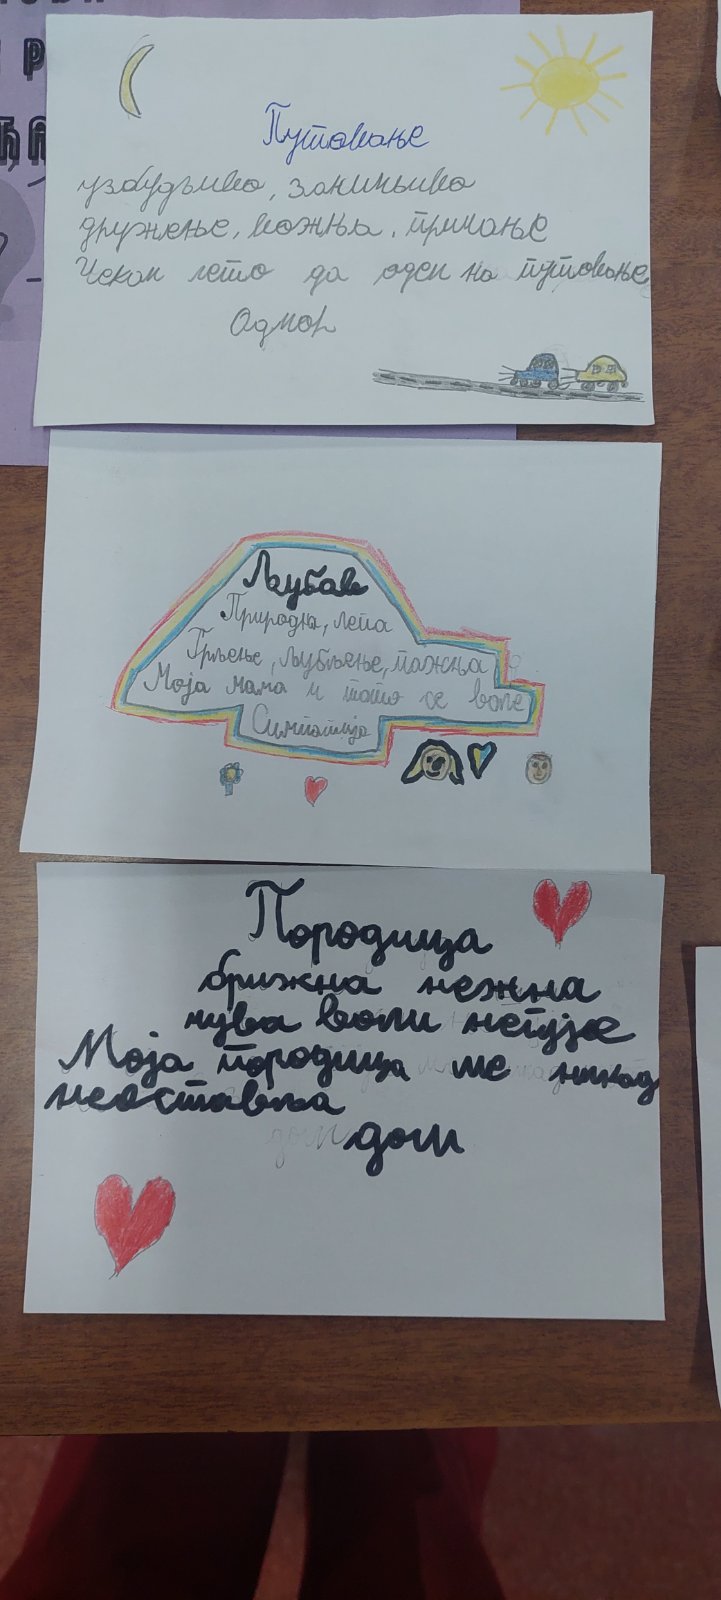 Путовање
узбудљиво, занимљиво
дружење, вожња, причање
Чекам лето да одем на путовање
Одмор
Љубав
Природна, лепа
Грљење, љубљење, пажња
Моја мама и тата се воле
Симпатија
Породица
брижна нежна
чува воли негује
Моја породица ме никад
неоставља
дом дом